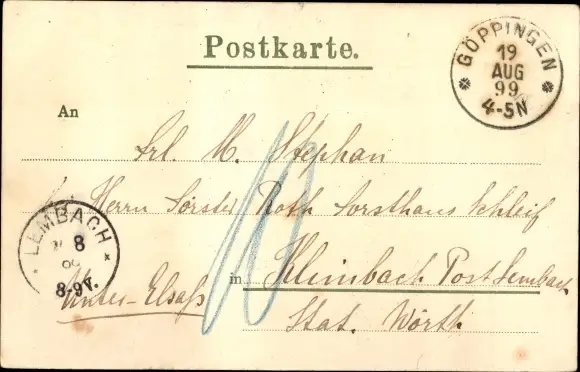 Postkarte.
GÖPPINGEN
19
AUG
99
4-5N
An
Frl. M. Stephan
Herrn Förster Roth Forsthaus Schleif
LEMBACH
8
8-9V.
in Klimbach Post Lembach
Unter-Elsaß
Stat. Wörth
10